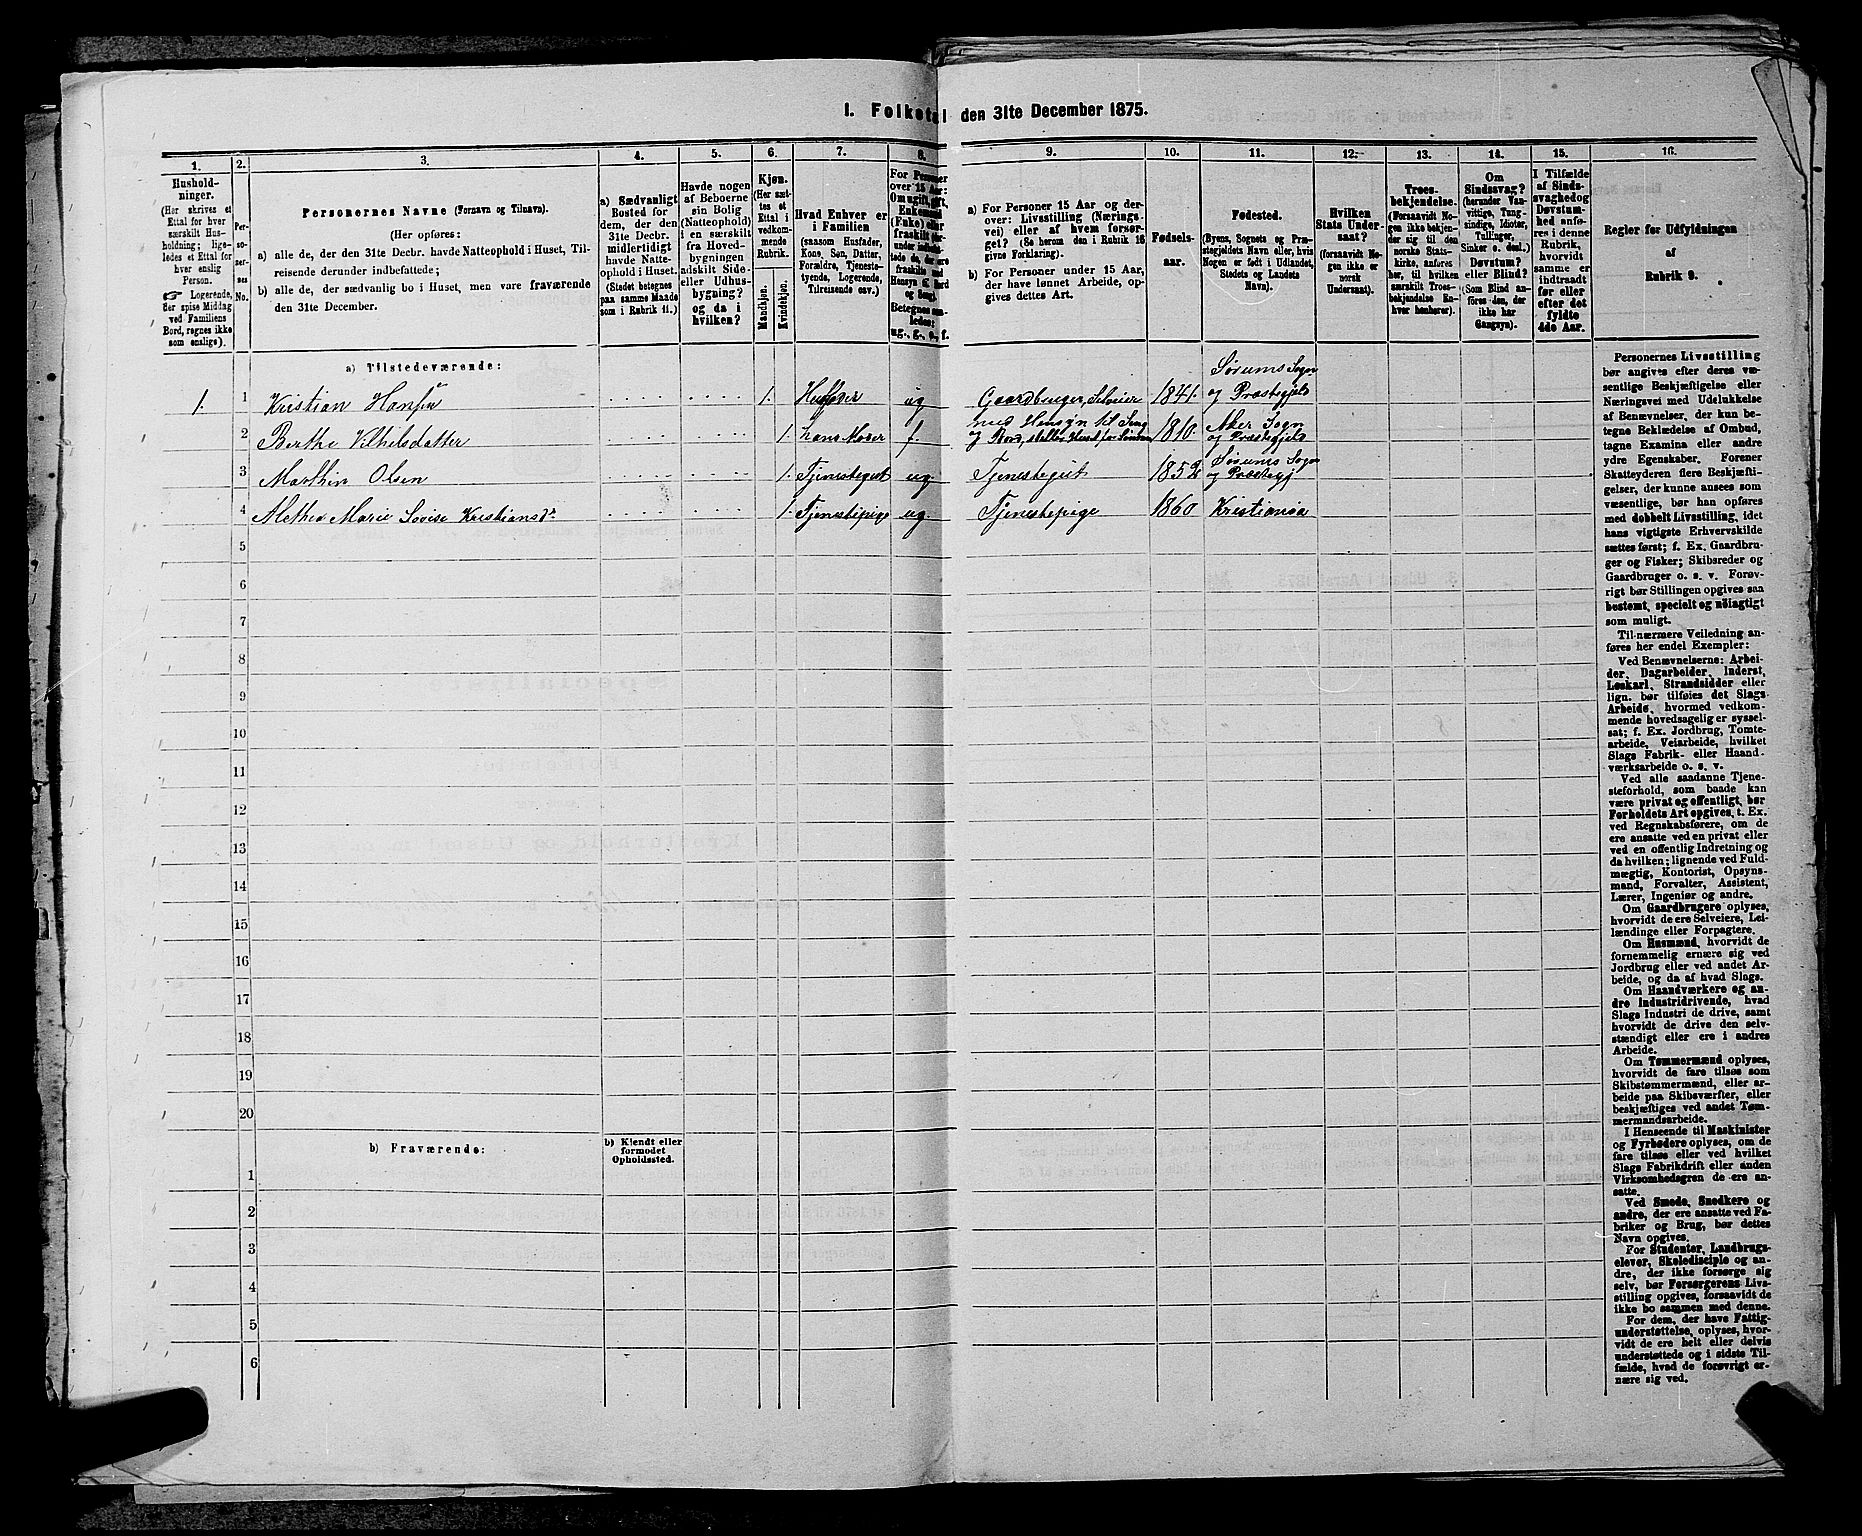 1. Folketal den 31te December 1875.
1. 2. 3. 4. 5. 6. 7. 8. 9. 10. 11. 12. 13. 14. 15. 16.
Hushold-
ninger.
(Her skrives et
Ettal for hver
særskilt Hus-
holdning; lige-
ledes et Ettal for
hver enslig
Person.
☞ Logerende,
der spise Middag
ved Familiens
Bord, regnes ikke
som enslige).
Per-
so-
ner-
nes
No.
Personernes Navne (Fornavn og Tilnavn).
(Her opføres:
a) alle de, der den 31te Decbr. havde Natteophold i Huset, Til-
reisende derunder indbefattede;
b) alle de, der sædvanlig bo i Huset, men vare fraværende
den 31te December.
a) Sædvanligt
Bosted for
dem, der den
31te Decbr.
midlertidigt
havde Natte-
ophold i Huset.
(Stedet betegnes
paa samme Maade
som i Rubrik 11.)
Havde nogen
af Beboerne
sin Bolig
(Natteophold)
i en særskilt
fra Hoved-
bygningen
adskilt Side-
eller Udhus-
bygning?
og da i
hvilken?
Kjøn.
(Her sæt-
tes et
Ettal i
vedkom-
mende
Rubrik.
Mandkjøn.
Kvindekjøn.
Hvad Enhver er
i Familien
(saasom Husfader,
Kone, Søn, Datter,
Forældre, Tjeneste-
tyende, Logerende,
Tilreisende osv.)
For Personer
over 15 Aar:
Om ugift, gift,
Enkemand
(Enke) eller
fraskilt
Hensyn t. Bord
og Seng).
Betegnes saa-
ledes:
ug., g., e., f.
a) For Personer 15 Aar og der-
over: Livsstilling (Nærings-
vei) eller af hvem forsør-
get? (Se herom den i Rubrik 16
givne Forklaring).
b) For Personer under 15 Aar,
der have lønnet Arbeide, op-
gives dettes Art.
Fødsels-
aar.
Fødested.
(Byens, Sognets og Præ-
stegjeldets Navn, eller, hvis
Nogen er født i Udlandet,
Stedets og Landets
Navn).
Hvilken
Stats Under-
saat?
(forsaavidt No-
gen ikke er
norsk
Undersaat).
Troes-
bekjendelse.
(Forsaavidt No-
gen ikke bekjen-
der sig til den
norske Stats-
kirke, anføres
her, til hvilken
særskilt Troes-
bekjendelse En-
hver henhører).
Om
Sindssvag?
(herunder Van-
vittige, Tung-
sindige, Idioter,
Tullinger,
Sinker o. desl.)
Døvstum?
eller Blind?
(Som Blind an-
føres den, der
ikke har
Gangsyn).
I Tilfælde
af Sinds-
svaghed og
Døvstum-
hed anfø-
res i denne
Rubrik,
hvorvidt
samme er
indtraadt
før eller
efter det
fyldte
4de Aar.
Regler for Udfyldningen
af
Rubrik 9.
a) Tilstedeværende:
1. 1 Kristian Hansen 1. Husfader ug Gaardbruger, Selveier 1841. Sørums Sogn
og Præstegjeld
2 Berthe Vilhelsdatter 1. hans Moder f. med Hensyn til Seng
og Bord, 1810. Aker Sogn
og Præstegjeld
3 Marthin Olsen 1. Tjenestegut ug. Tjenestegut 1852 Sørums Sogn
og Præstegj
4 Alethea Marie Lovise Kristiansd. 1. Tjenestepige ug. Tjenestepige 1860 Kristiania
5
6
7
8
9
10
11
12
13
14
15
16
17
18
19
20
b) Fraværende:
b) Kjendt eller
formodet
Opholdssted.
1
2
3
4
5
6
Personernes Livsstilling
bør angives efter deres væ-
sentlige Beskjæftigelse eller
Næringsvei med Udelukkelse
af Benævnelser, der kun be-
tegne Beklædelse af Ombud,
tagne Examina eller andre
ydre Egenskaber. Forener
Skatteyderen flere Beskjæfti-
gelser, der kunne ansees som
væsentlige, bør han opføres
med dobbelt Livsstilling, idet
hans vigtigste Erhvervskilde
sættes først; f. Ex. Gaardbru-
ger og Fisker; Skibsreder og
Gaardbruger o. s. v. Forøv-
rigt bør Stillingen opgives saa
bestemt, specielt og nöiagtigt
som muligt.
Til nærmere Veiledning an-
føres her endel Exempler:
Ved Benævnelserne: Arbei-
der, Dagarbeider, Inderst,
Løskarl, Strandsidder eller
lign. bør tilføies det Slags
Arbeide, hvormed vedkom-
mende hovedsagelig er syssel-
sat; f. Ex. Jordbrug, Tomte-
arbeide, Veiarbeide, hvilket
Slags Fabrik- eller Haand-
værksarbeide o. s. v.
Ved alle saadanne Tjene-
steforhold, som baade kan
være privat og offentligt, bør
Forholdets Art opgives, t. Ex.
ved Regnskabsførere, om de
ere ansatte ved en privat eller
ved en offentlig Indretning og
da hvilken; lignende ved Fuld-
mægtig, Kontorist, Opsyns-
mand, Forvalter, Assistent,
Lærer, Ingeniør og andre.
Om Gaardbrugere oplyses,
hvorvidt de ere Selveiere, Lei-
lændinge eller Forpagtere.
Om Husmænd, hvorvidt de
fornemmelig ernære sig ved
Jordbrug eller ved andet Ar-
beide, og da af hvad Slags.
Om Haandværkere og an-
dre Industridrivende, hvad
Slags Industri de drive, samt
hvorvidt de drive den selv-
stændigt eller ere i andres
Arbeide.
Om Tømmermænd oplyses,
hvorvidt de fare tilsøs som
Skibstømmermænd, eller ar-
beide paa Skibsværfter, eller
beskjæftiges ved andet Tøm-
mermandsarbeide.
I Henseende til Maskinister
og Fyrbødere oplyses, om de
fare tilsøs eller ved hvilket
Slags Fabrikdrift eller anden
Virksomhedsgren de ere an-
satte.
Ved Smede, Snedkere og
andre, der ere ansatte ved Fa-
briker og Brug, bør dettes
Navn opgives.
For Studenter, Landbrugs-
elever, Skoledisciple og an-
dre, der ikke forsørge sig
selv, bør Forsørgerens Livs-
stilling opgives, forsaavidt de
ikke bo sammen med denne.
For dem, der have Fattig-
understøttelse, oplyses, hvor-
vidt de ere helt eller delvis
understøttede og i sidste Til-
fælde, hvad de forøvrigt er-
nære sig ved.